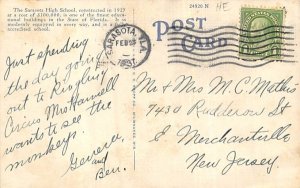 The Sarasota High School, constructed in 1927
at a cost of $500,000, is one of the finest educational
buildings in the State of Florida. It is
modernly equipped in every way, and is an
accredited school.
24520 N
4E
POST
CARD
SARASOTA, FLA.
FEB
1937
Just spending
the day going
out to Ringling
Circus Mrs Harrell
wants to see the
monkeys.
Geneva
and
Ben.
Mr + Mrs M. C. Mathis
7430 Rudderow St
E. Merchantville
New Jersey.